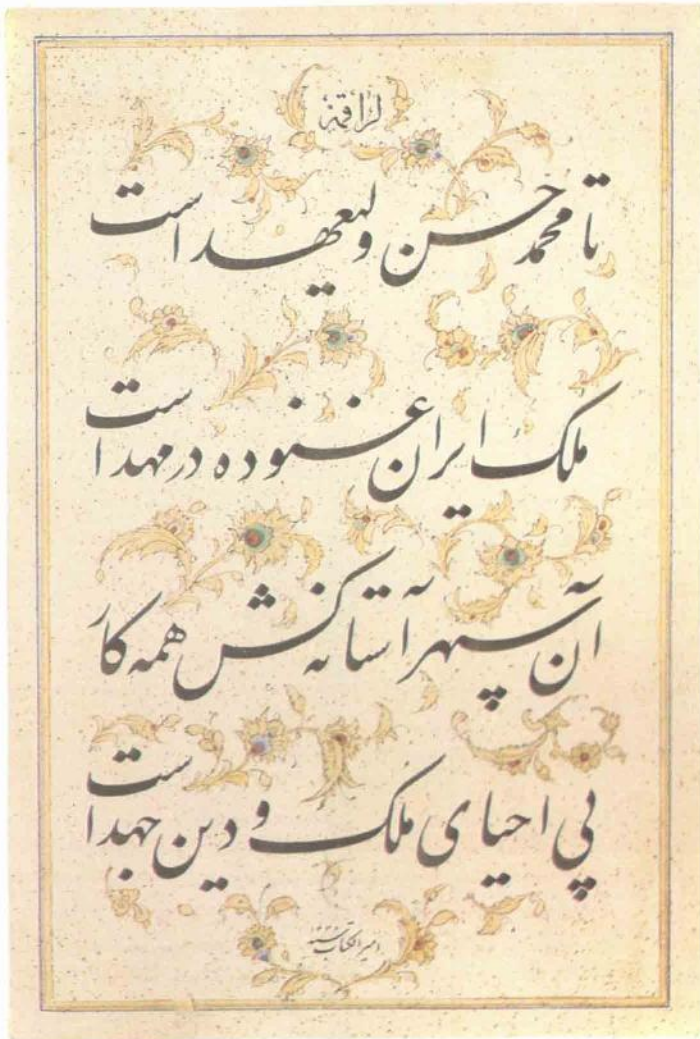 لراقمه
تا محمد حسن ولیعهد است
ملک ایران غنوده در مهد است
آن سپهر آستانه کش همه کار
پی احیای ملک و دین جهد است
امیرالکتاب سنه